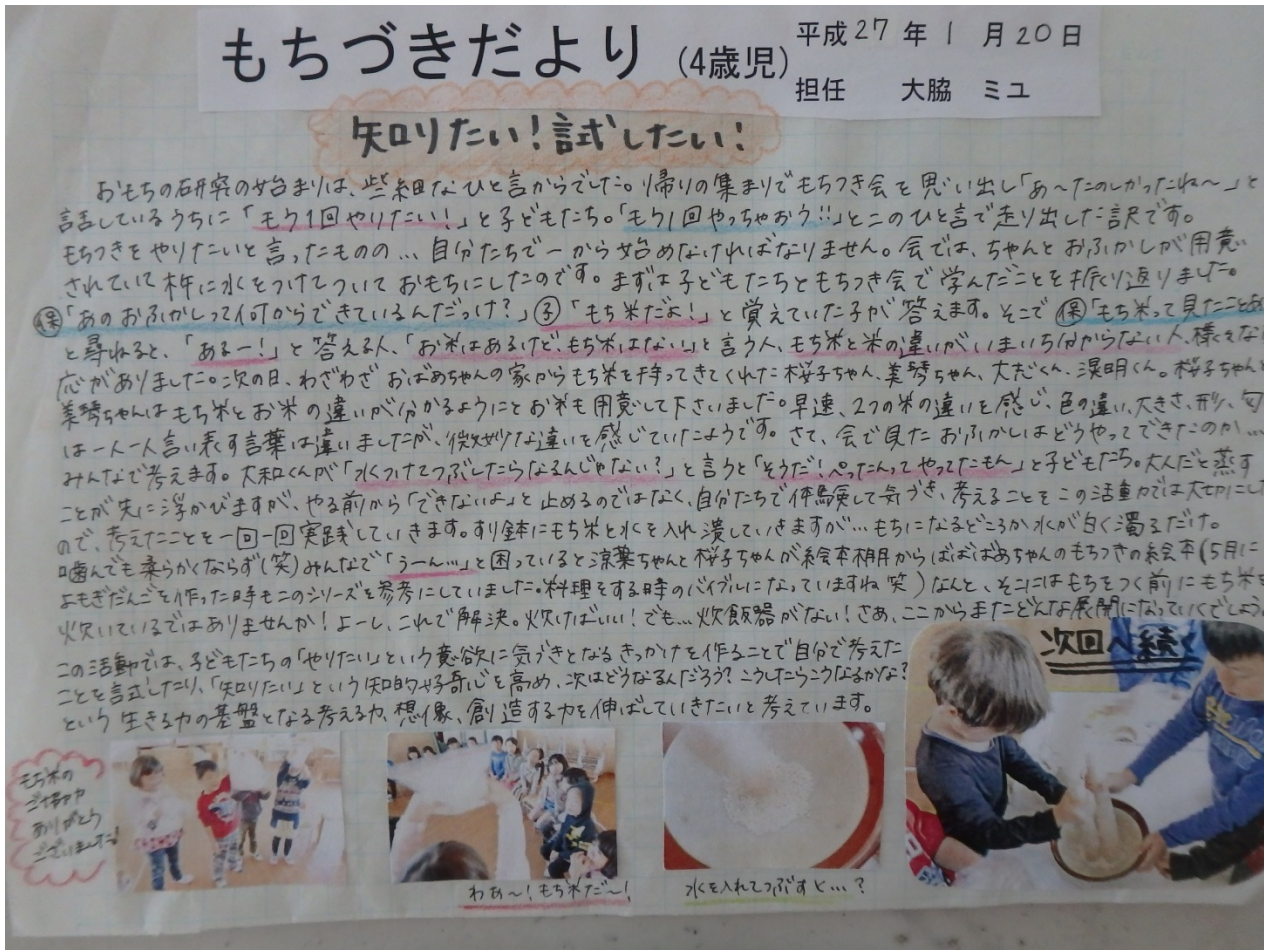 もちづきだより (4歳児)
平成27年1月20日
担任 大脇 ミユ
知りたい!試したい!
おもちの研究の始まりは、些細なひと言からでした。帰りの集まりでもちつき会を思い出し「あ〜たのしかったね〜」と
話しているうちに「もう1回やりたい!」と子どもたち。「もう1回やっちゃおう!!」とこのひと言で走り出した訳です。
もちつきをやりたいと言ったものの…自分たちで一から始めなければなりません。会では、ちゃんとおふかしが用意
されていて杵に水をつけてついておもちにしたのです。まずは子どもたちともちつき会で学んだことを振り返りました。
保「あのおふかしって何からできているんだっけ?」子「もち米だよ!」と覚えていた子が答えます。そこで保「もち米って見たことあ
と尋ねると、「あるー!」と答える人、「お米はあるけど、もち米はない」と言う人、もち米と米の違いがいまいち分からない人、様々な
応がありました。次の日、わざわざおばあちゃんの家からもち米を持ってきてくれた桜子ちゃん、美琴ちゃん、大だくん、滉明くん。桜子ちゃんと
美琴ちゃんはもち米とお米の違いが分かるようにとお米も用意して下さいました。早速、2つの米の違いを感じ、色の違い、大きさ、形、匂
は一人一人言い表す言葉は違いましたが、微妙な違いを感じていたようです。さて、会で見たおふかしはどうやってできたのか…
みんなで考えます。大和くんが「水つけてつぶしたらなるんじゃない?」と言うと「そうだ!ぺったんってやってたもん」と子どもたち。大人だと蒸す
ことが先に浮かびますが、やる前から「できないよ」と止めるのではなく、自分たちで体験して気づき、考えることをこの活動では大切にした
ので、考えたことを一回一回実践していきます。すり鉢にもち米と水を入れ潰していきますが…もちになるどころか水が白く濁るだけ。
噛んでも柔らかくならず(笑)みんなで「うーん…」と困っていると涼葉ちゃんと桜子ちゃんが絵本棚からばばばあちゃんのもちつきの絵本(5月に
よもぎだんごを作った時もこのシリーズを参考にしていました。料理をする時のバイブルになっていますね笑)なんと、そこにはもちをつく前にもち米を
炊いているではありませんか!よーし、これで解決。炊けばいい!でも…炊飯器がない!さあ、ここからまたどんな展開になっていくでしょう。
この活動では、子どもたちの「やりたい」という意欲に気づきとなるきっかけを作ることで自分で考えた
ことを試したり、「知りたい」という知的好奇心を高め、次はどうなるんだろう?こうしたらこうなるかな?
という生きる力の基盤となる考える力、想像、創造する力を伸ばしていきたいと考えています。
次回へ続く
もち米の
ご協力
ありがとう
ございました!
わぁ〜!もち米だ〜!
水を入れてつぶすと…?